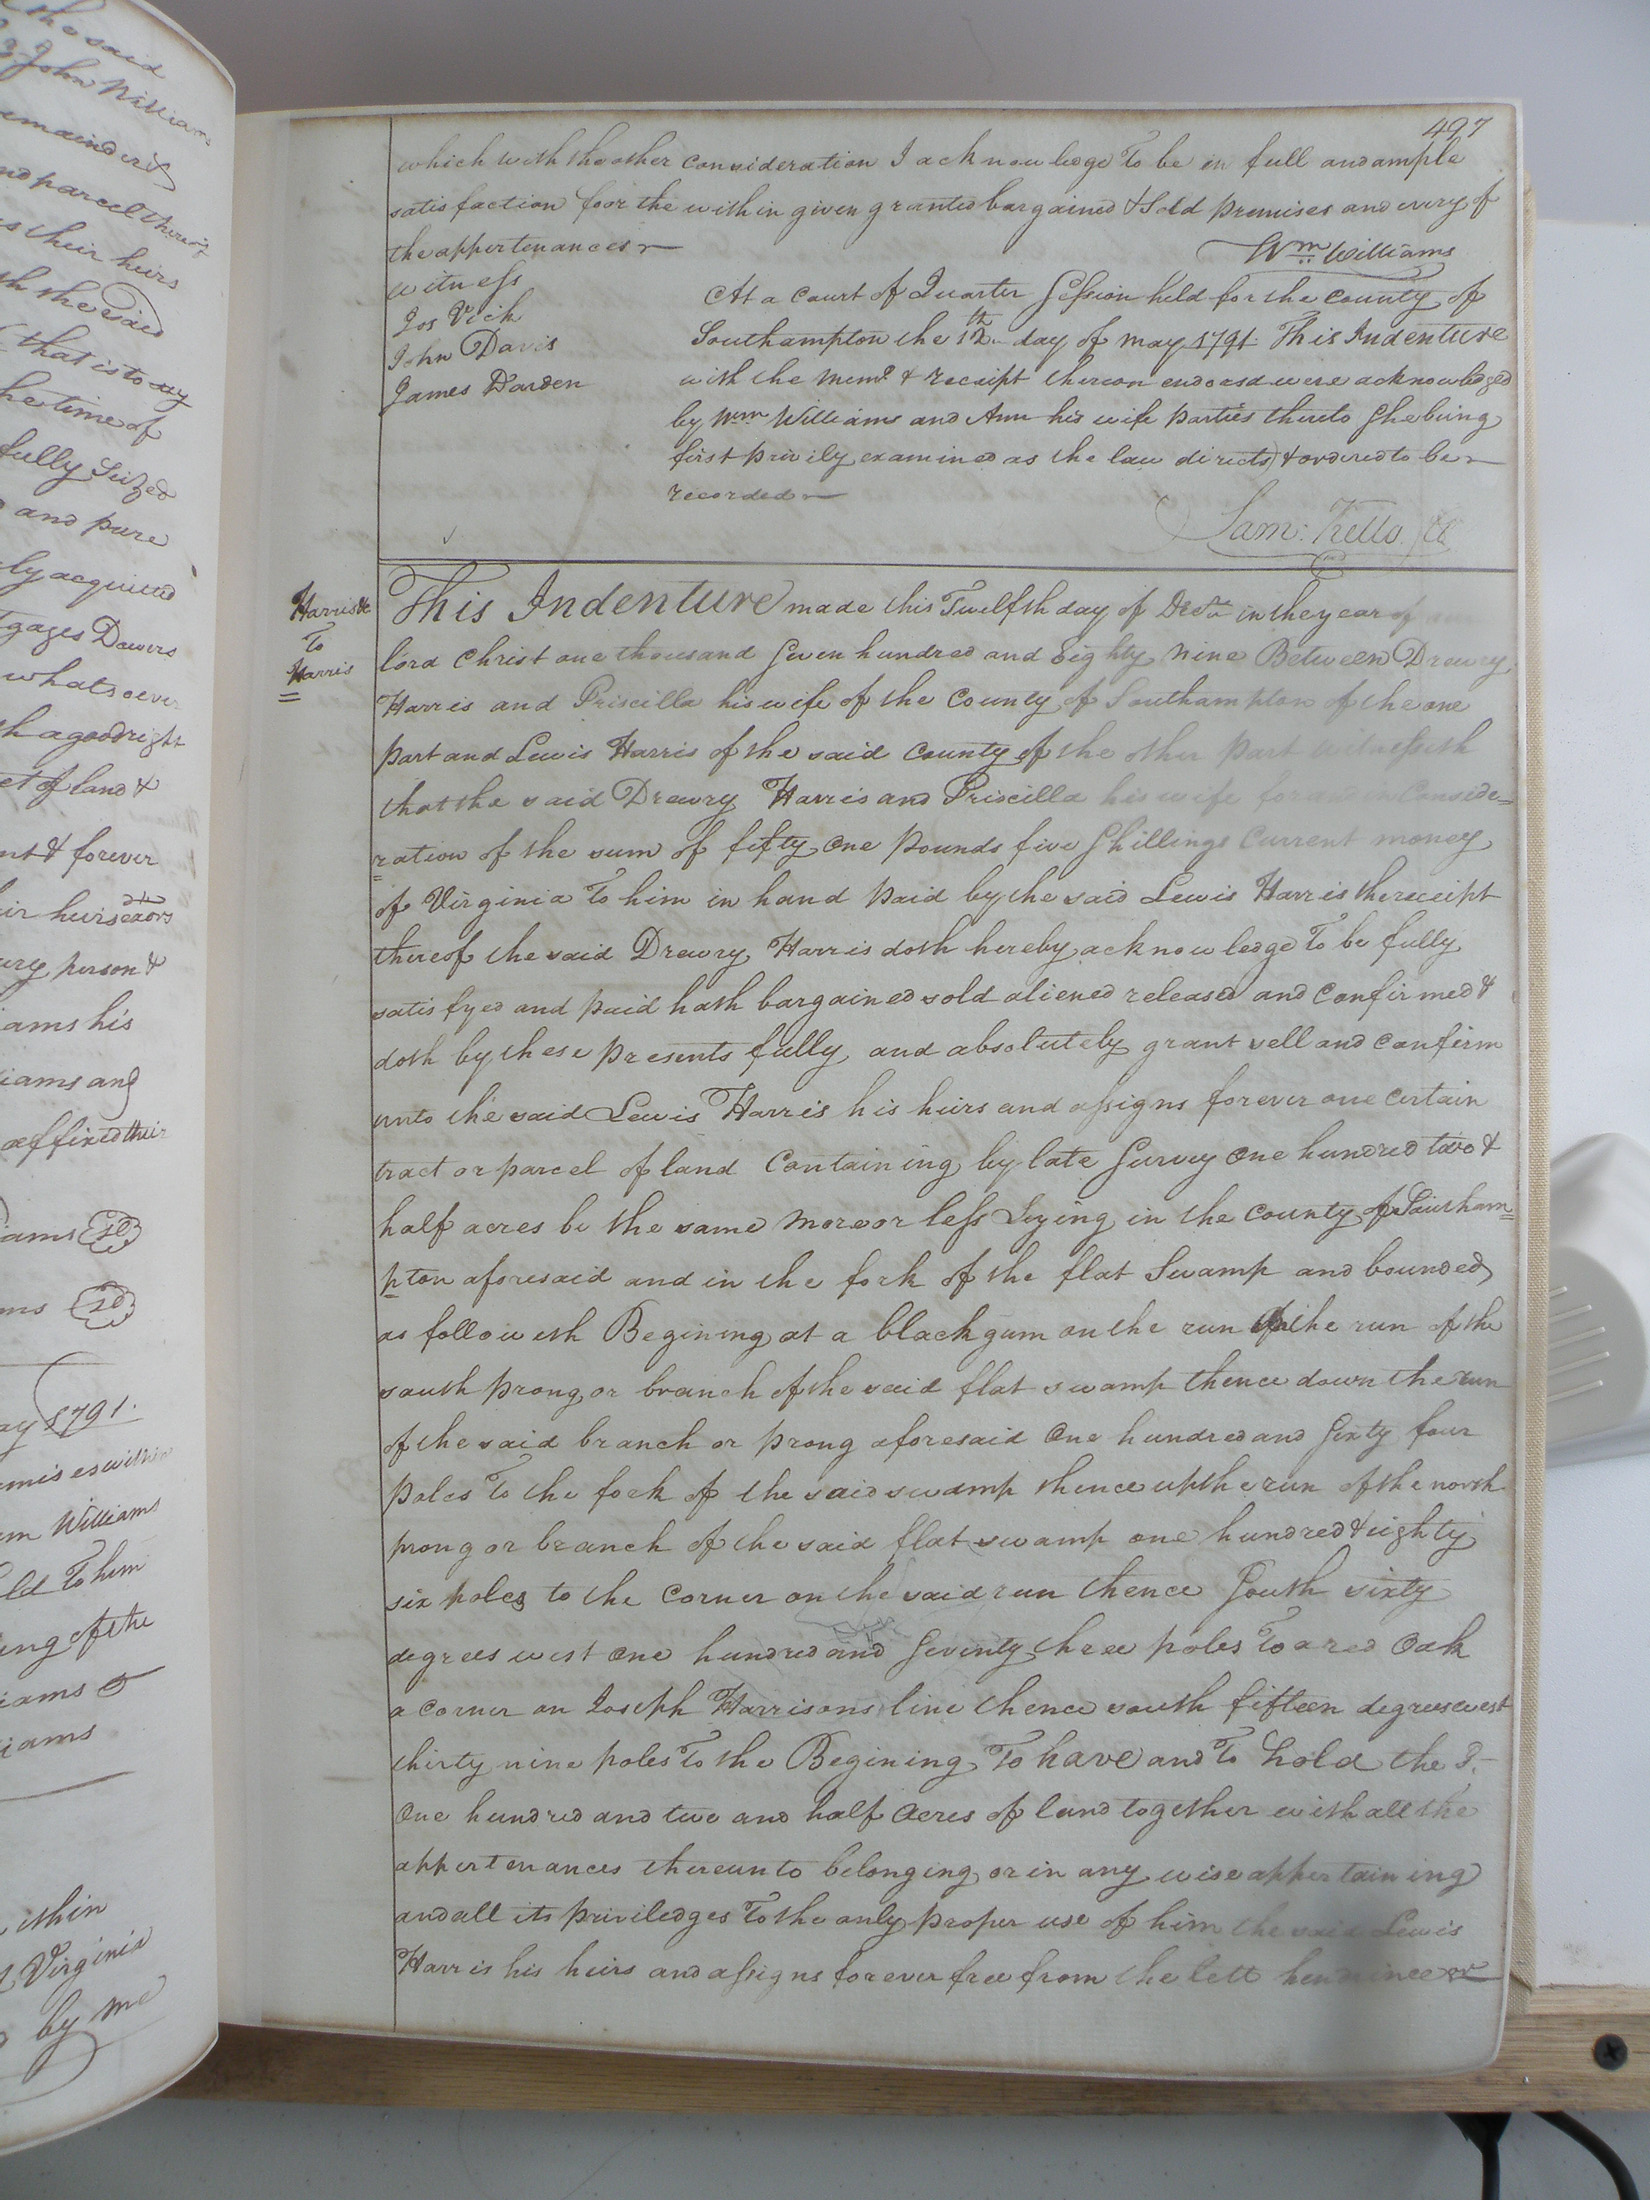 the said
John Williams
remainders
and parcel thereof
s their heirs
th the said
that is to say
he time of
fully Seized
and pure
ly acquited
tgages Dowers
whatsoever
h a good right
ct of land &
nt & forever
ir heirs exors
ury person &
iams his
iams and
affixed their
iams
ms
ay 1791.
mises within
m Williams
ld To him
ing of the
iams
iams
ithin
Virginia
by me
497
which with the other consideration I acknowledge To be in full and ample
satisfaction foor the within given granted bargained & Sold premises and every of
the appertenances
Wm Williams
witness
Jos Vick
John Davis
James Darden
At a Court of Quarter Session held for the County of
Southampton the 12th day of may 1791. This Indenture
with the Memd. & receipt thereon endorsd were acknowledged
by Wm Williams and Ann his wife parties thereto She being
first privily examined as the law directs) & ordered to be
recorded
Sam: Kello Cl
Harris &c
To
Harris
This Indenture made this Twelfth day of Decr in the year of
lord Christ one thousand Seven hundred and Eighty Nine Between Drewry
Harris and Priscilla his wife of the County of Southampton of the one
part and Lewis Harris of the said County of the other part witnesseth
that the said Drewry Harris and Priscilla his wife for and in Conside=
ration of the sum of fifty one pounds five Shillings Current money
of Virginia To him in hand paid by the said Lewis Harris the receipt
thereof the said Drewry Harris doth hereby acknowledge To be fully
satisfyed and paid hath bargained sold aliened released and Confirmed &
doth by these presents fully and absolutely grant sell and Confirm
unto the said Lewis Harris his heirs and assigns forever one Certain
tract or parcel of land Containing by late Survey One hundred two &
half acres be the same more or less Lying in the County of Southam=
pton aforesaid and in the fork of the flat Swamp and bounded
as followeth Begining at a black gum on the run of the run of the
south prong or branch of the said flat swamp thence down the run
of the said branch or prong aforesaid One hundred and Sixty four
Poles To the fork of the said swamp thence up the run of the north
prong or branch of the said flat swamp one hundred & eighty
six poles to the Corner on the said run thence South sixty
degrees west One hundred and Seventy three poles To a red Oak
a corner on Joseph Harrisons line thence south fifteen degrees west
thirty nine poles To the Begining To have and To hold the S.
One hundred and two and half Acres of land together with all the
appertenances thereunto belonging or in any wise appertaining
and all its priviledges To the only proper use of him the said Lewis
Harris his heirs and assigns forever free from the lett hendrince or